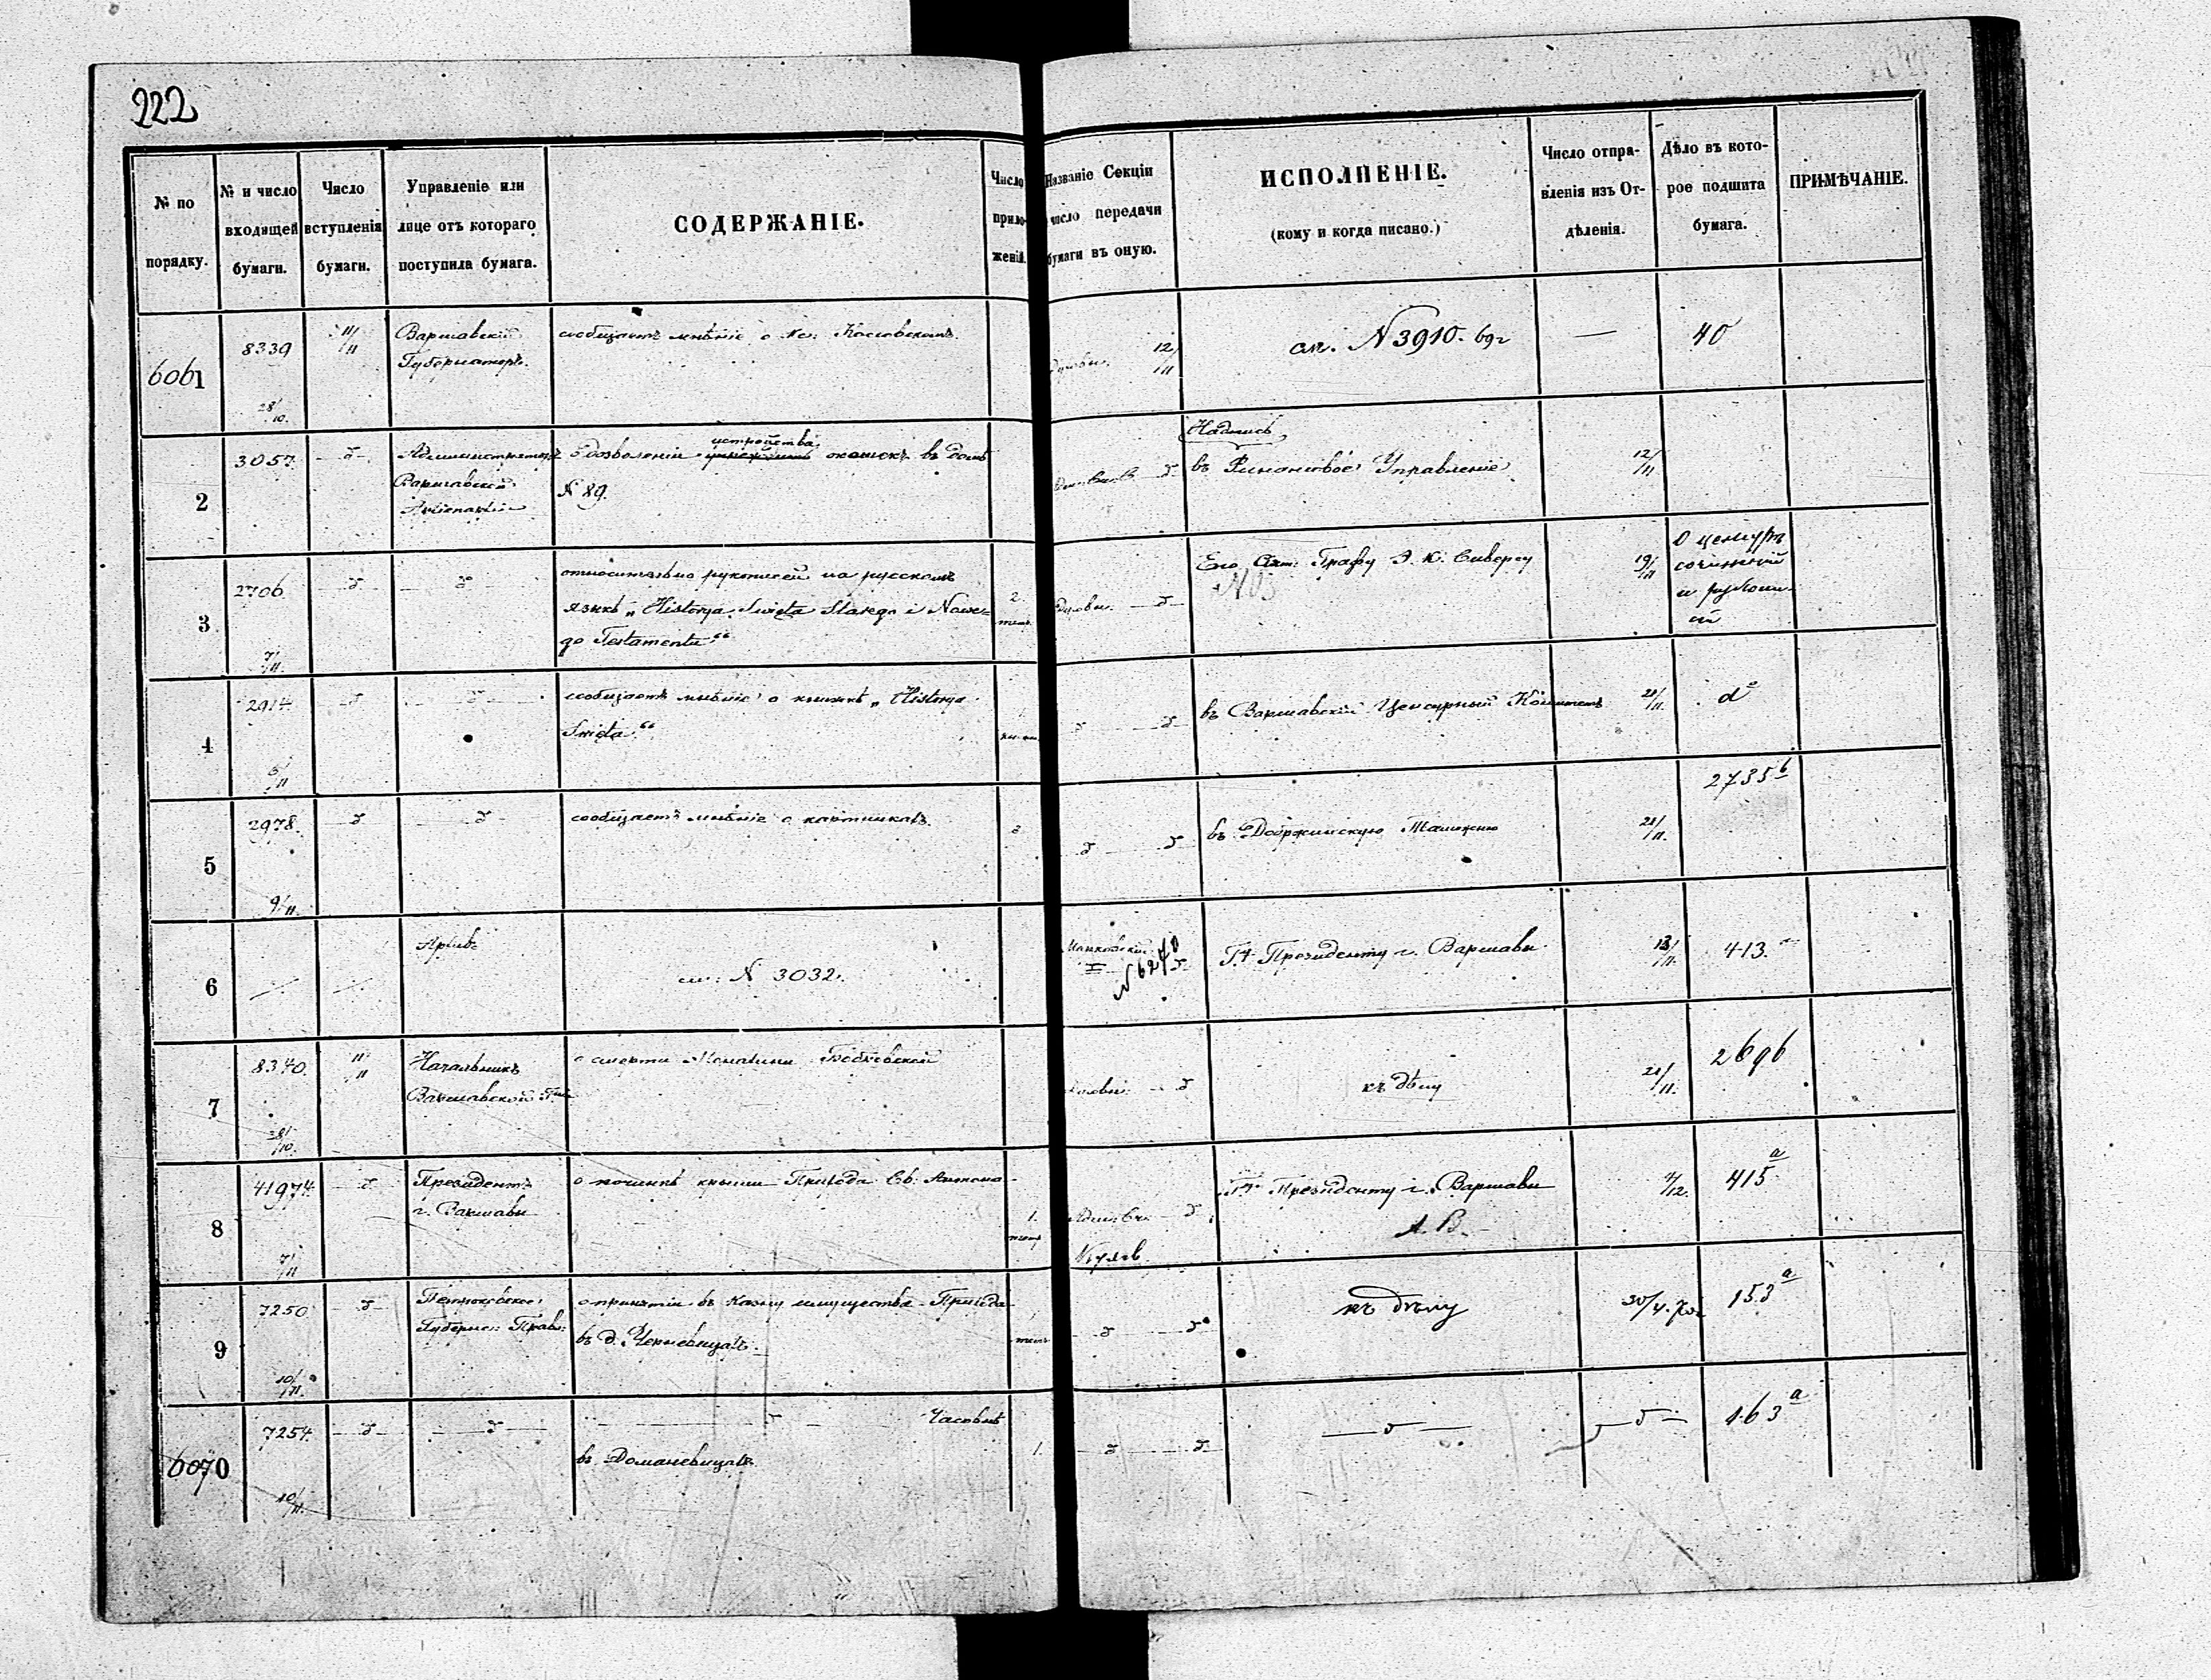 222
№ по порядку.
№ и число входящей бумаги.
Число вступленія бумаги.
Управленіе или лице отъ котораго поступила бумага.
СОДЕРЖАНІЕ.
Число прило- женій.
Названіе Секціи число передачи бумаги въ оную.
ИСПОЛНЕНІЕ.
(кому и когда писано.)
Число отпра- вленія изъ От- дѣленія.
Дѣло въ кото- рое подшита бумага.
ПРИМѢЧАНІЕ.
6061
8339
28/10.
11/11
Варшавскій
Губернаторъ.
сообщаетъ мнѣніе о Кс:
12/11
см. N 3910. 69г
—
40
2
3057.
Администраторъ
Варшавской
О дозволеніи устройства окошекъ въ домѣ
N 89.
Надпись
въ Финансовое Управленіе
12/11
3
2706
7/11.
относительно рукописей на русскомъ
языкѣ „Historya Święta Starego i Nowe=
go Testamentu“
2.
Его Сіят: Графу Э. К. Сиверсу
19/11
О цензурѣ
сочиненій
и рукопи-
сей
4
2914.
6/11
сообщаетъ мнѣніе о книжкѣ „Historya
Święta“
1.
въ Варшавскій Цензурный Комитетъ
21/11.
d°
5
2978.
9/11.
сообщаетъ мнѣніе о картинкахъ.
въ Добржинскую Таможню
21/11.
2735 b
6
см: N 3032.
N 6240
Гд Президенту г. Варшавы
13/11.
413.
7
8340.
28/10.
11/11
Начальникъ
Варшавской Губ
о смерти Монахини
къ дѣлу
21/11.
2696
8
41974.
7/11
Президентъ
г. Варшавы
о починкѣ крыши Прихода Св. Антона
1.
Гд Президенту г. Варшавы
А. В.
4/12.
415 a
9
7250
10/11.
Петроковское
Губернс: Правл:
о принятіи въ казну имущества Прихода
въ д. Черневицахъ.
къ дѣлу
30/4. 70г
153 a
6070
7254.
10/11.
Часовнѣ
въ Доманевицахъ.
1.
163 a